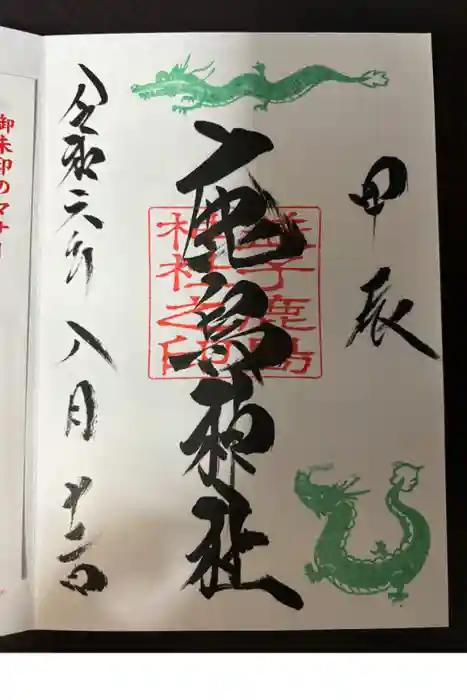 甲辰
鹿島神社
益子鹿島
神社之印
令和六年八月十二日
御朱印のマナー